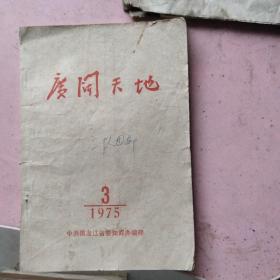 廣闊天地
3
1975
中共黑龙江省委知青办编印